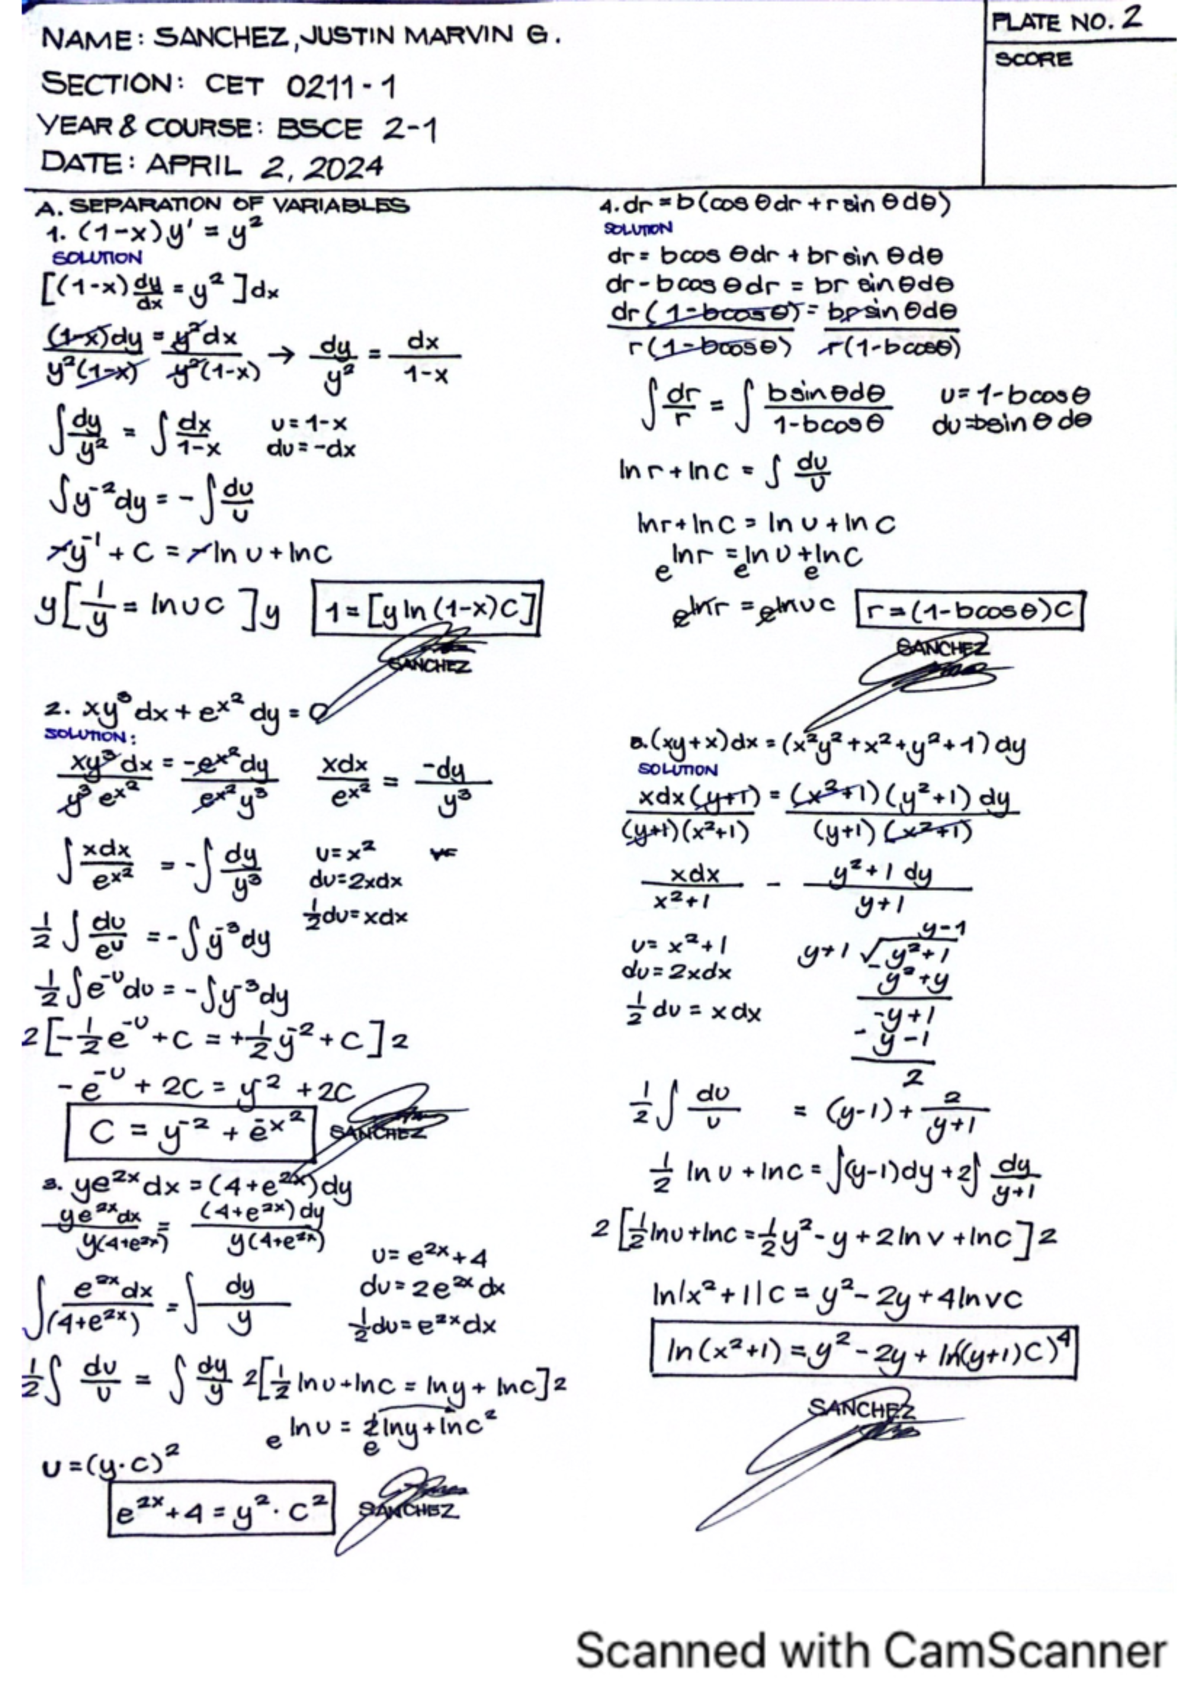 NAME: SANCHEZ, JUSTIN MARVIN G.
SECTION: CET 0211-1
YEAR & COURSE: BSCE 2-1
DATE: APRIL 2, 2024
PLATE NO. 2
SCORE
A. SEPARATION OF VARIABLES
1. (1-x)y' = y²
SOLUTION
[(1-x) dy/dx = y²]dx
(1-x)dy / y²(1-x) = y²dx / y²(1-x) → dy/y² = dx/1-x
∫dy/y² = ∫dx/1-x u=1-x
du=-dx
∫y⁻²dy = -∫du/u
-y⁻¹ + C = -ln u + ln C
y[1/y = ln u C]y 1=[y ln (1-x)C]
SANCHEZ
2. xy³dx + e^x² dy = 0
SOLUTION:
xy³dx / y³e^x² = -e^x²dy / e^x²y³ xdx/e^x² = -dy/y³
∫xdx/e^x² = -∫dy/y³ u=x²
du=2xdx
½du=xdx
½∫du/e^u = -∫y⁻³dy
½∫e^-u du = -∫y⁻³dy
2[-½e^-u + C = +½y⁻² + C]2
-e^-u + 2C = y⁻² + 2C
C = y⁻² + e^-x²
SANCHEZ
3. ye^2xdx = (4+e^2x)dy
ye^2xdx / y(4+e^2x) = (4+e^2x)dy / y(4+e^2x)
∫e^2xdx/(4+e^2x) = ∫dy/y u=e^2x+4
du=2e^2xdx
½du=e^2xdx
½∫du/u = ∫dy/y 2[½ ln u + ln C = ln y + ln C]2
e^ln u = e^2ln y + ln C²
u=(y·C)²
e^2x+4 = y²·C²
SANCHEZ
4. dr = b(cos θdr + r sin θdθ)
SOLUTION
dr = bcos θdr + br sin θdθ
dr - bcos θdr = br sin θdθ
dr(1-bcosθ) / r(1-bcosθ) = br sin θdθ / r(1-bcosθ)
∫dr/r = ∫bsinθdθ/1-bcosθ u=1-bcosθ
du=bsin θ dθ
ln r + ln C = ∫du/u
ln r + ln C = ln u + ln C
e^ln r = e^ln u + e^ln C
e^ln r = e^ln u C r=(1-bcosθ)C
SANCHEZ
5. (xy+x)dx = (x²y²+x²+y²+1)dy
SOLUTION
xdx(y+1) / (y+1)(x²+1) = (x²+1)(y²+1)dy / (y+1)(x²+1)
xdx/x²+1 - y²+1 dy/y+1
u=x²+1
du=2xdx
½du=xdx
y-1
y+1 √y²+1
-y²+y
-y+1
-y-1
2
½∫du/u = (y-1)+2/y+1
½ ln u + ln C = ∫(y-1)dy + 2∫dy/y+1
2[½ln u + ln C = ½y² - y + 2 ln v + ln C]2
ln|x²+1|C = y² - 2y + 4 ln v C
ln(x²+1) = y² - 2y + ln((y+1)C)⁴
SANCHEZ
Scanned with CamScanner